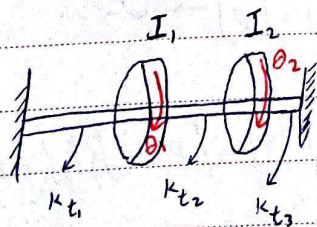 I₁ I₂
θ₁ θ₂
K_t₁ K_t₂ K_t₃